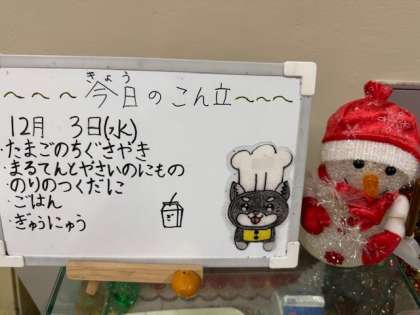 きょう
～～～今日のこん立～～～
12月 3日(水)
・たまごのちぐさやき
・まるてんとやさいのにもの
・のりのつくだに
・ごはん
・ぎゅうにゅう